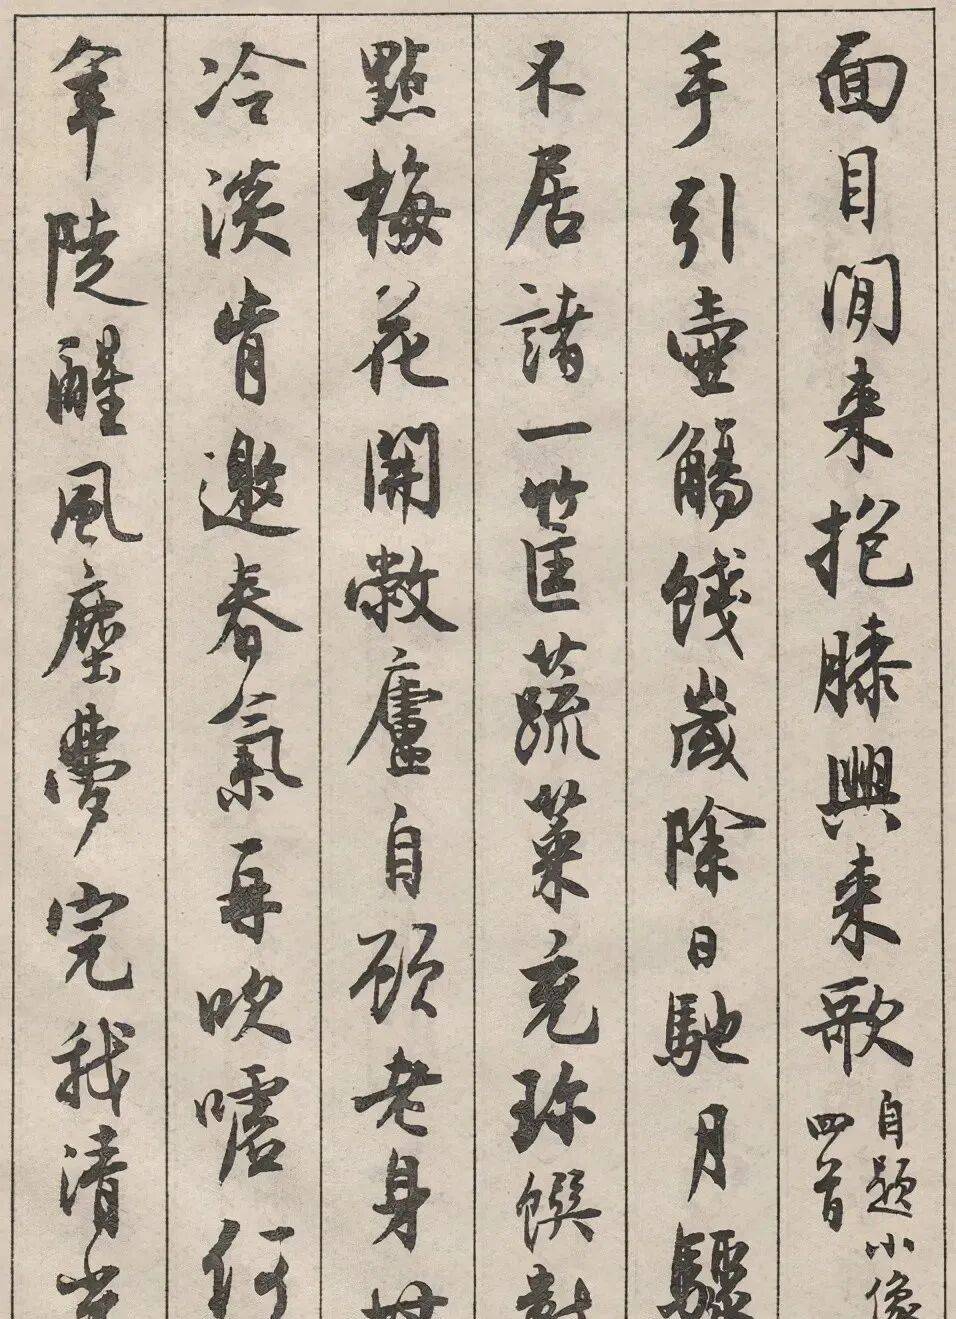 面目閒来抱膝興来歌 自題小像
四首
手引壷觴餞歲除日馳月驟
不居諸一筐蔬菜充珍饌
點梅花開敝廬自顧老身
冷淡肯邀春氣再吹嘘何
年陡醒風塵夢完我清